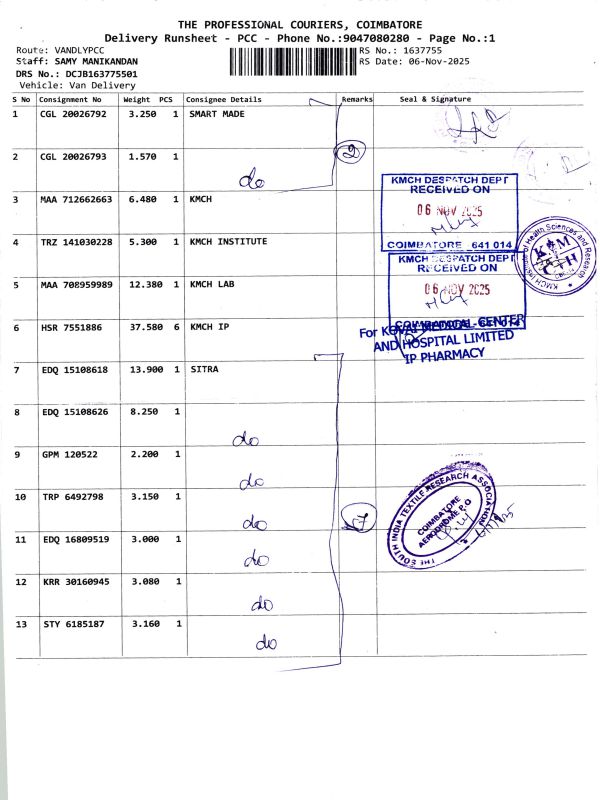 THE PROFESSIONAL COURIERS, COIMBATORE
Delivery Runsheet - PCC - Phone No.:9047080280 - Page No.:1
Route: VANDLYPCC
RS No.: 1637755
Staff: SAMY MANIKANDAN
RS Date: 06-Nov-2025
DRS No.: DCJB163775501
Vehicle: Van Delivery
S No Consignment No Weight PCS Consignee Details Remarks Seal & Signature
1 CGL 20026792 3.250 1 SMART MADE
2 CGL 20026793 1.570 1 do
2
3 MAA 712662663 6.480 1 KMCH
KMCH DESPATCH DEPT
RECEIVED ON
06 NOV 2025
COIMBATORE 641 014
4 TRZ 141030228 5.300 1 KMCH INSTITUTE
KMCH Institute of Health Sciences and Research
5 MAA 708959989 12.380 1 KMCH LAB
KMCH DESPATCH DEPT
RECEIVED ON
06 NOV 2025
6 HSR 7551886 37.580 6 KMCH IP
For KOVAI MEDICAL CENTER
AND HOSPITAL LIMITED
IP PHARMACY
7 EDQ 15108618 13.900 1 SITRA
8 EDQ 15108626 8.250 1 do
9 GPM 120522 2.200 1 do
10 TRP 6492798 3.150 1 do
7
THE SOUTH INDIA TEXTILE RESEARCH ASSOCIATION
COIMBATORE
AERODROME P.O
11 EDQ 16809519 3.000 1 do
12 KRR 30160945 3.080 1 do
13 STY 6185187 3.160 1 do